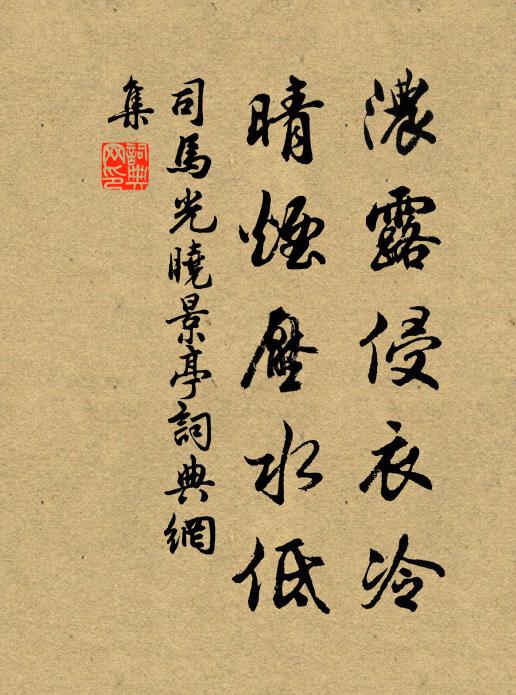 濃露侵衣冷
晴煙壓水低
司馬光曉景亭詞典網
集
詞典網印